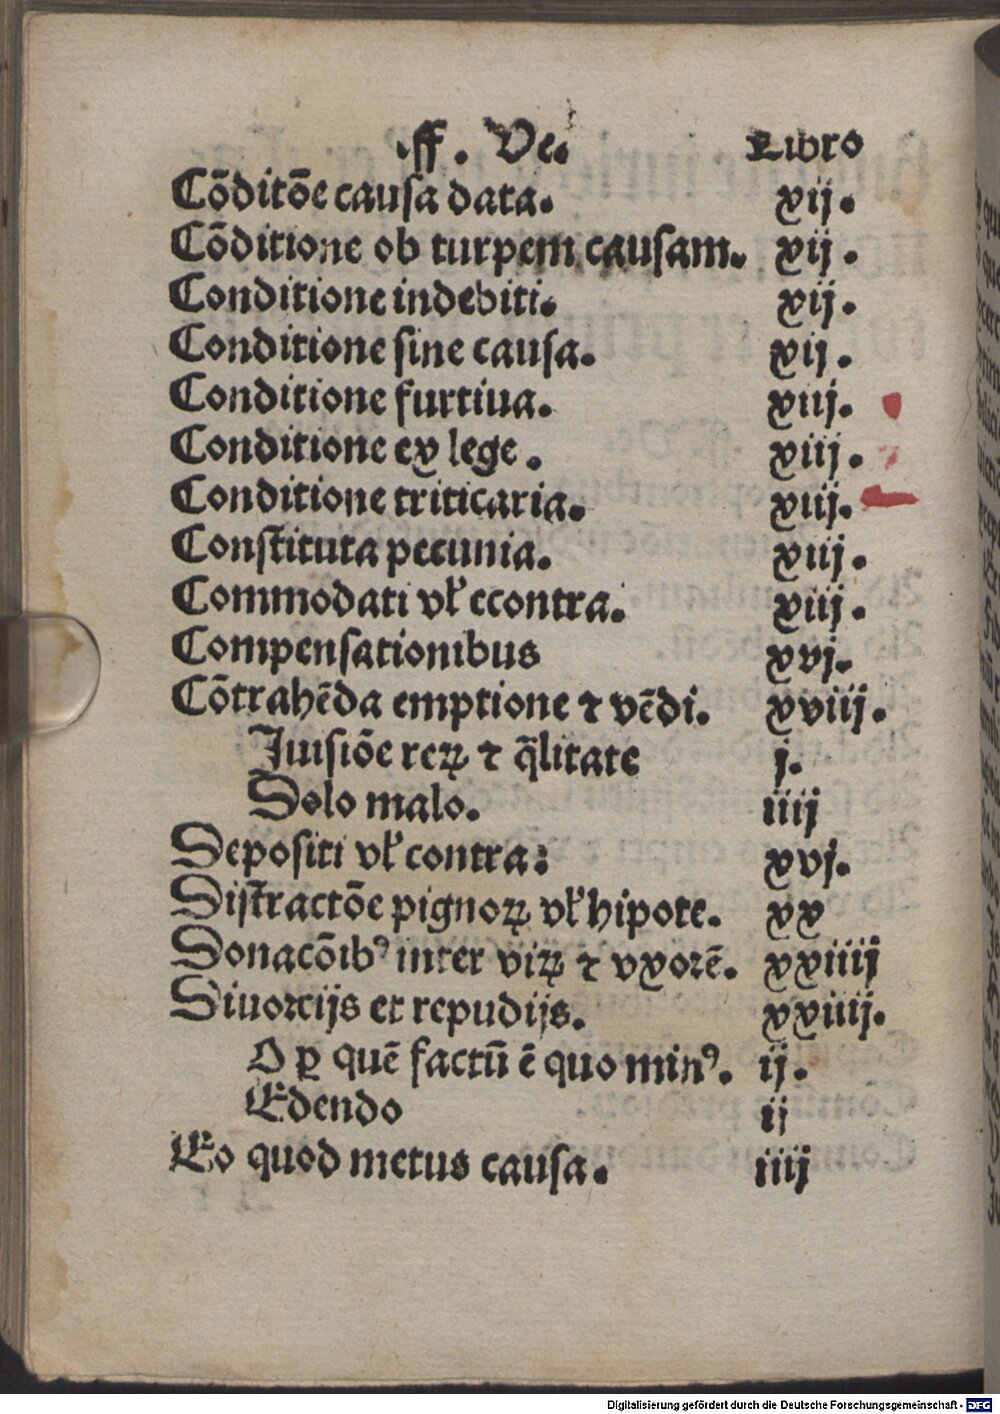 .ff. Ve. Libro
Cōditōe causa data. xij.
Cōditione ob turpem causam. xij.
Conditione indebiti. xij.
Conditione sine causa. xij.
Conditione furtiua. xiij.
Conditione ex lege. xiij.
Conditione triticaria. xiij.
Constituta pecunia. xiij.
Commodati vl' econtra. xiij.
Compensationibus xvj.
Cōtrahēda emptione ⁊ vēdi. xviij.
Iuisiōe reꝝ ⁊ q̄litate j.
Dolo malo. iiij
Depositi vl' contra: xvj.
Distractōe pignoꝝ vl' hipote. xx
Donacōibꝰ inter viꝝ ⁊ vxorē. xxiiij
Diuorcijs et repudijs. xxiiij.
O ꝑ quē factū ē quo minꝰ. ij.
Edendo ij
Eo quod metus causa. iiij
Digitalisierung gefördert durch die Deutsche Forschungsgemeinschaft - DFG